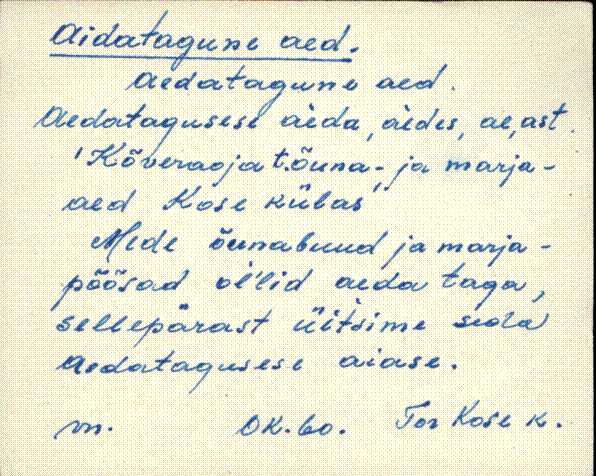 Aidatagune aed.
Aedatagune aed.
Aedatagusese aeda, aedes, aeast.
'Kõveraoja t. õuna- ja marja-
aed Kose külas'
Mede õunabuud ja marja-
põõsad ol'lid aeda taga,
sellepärast üitsime seda
aedatagusese aiase.
vn. OK. 60. Tor Kose k.